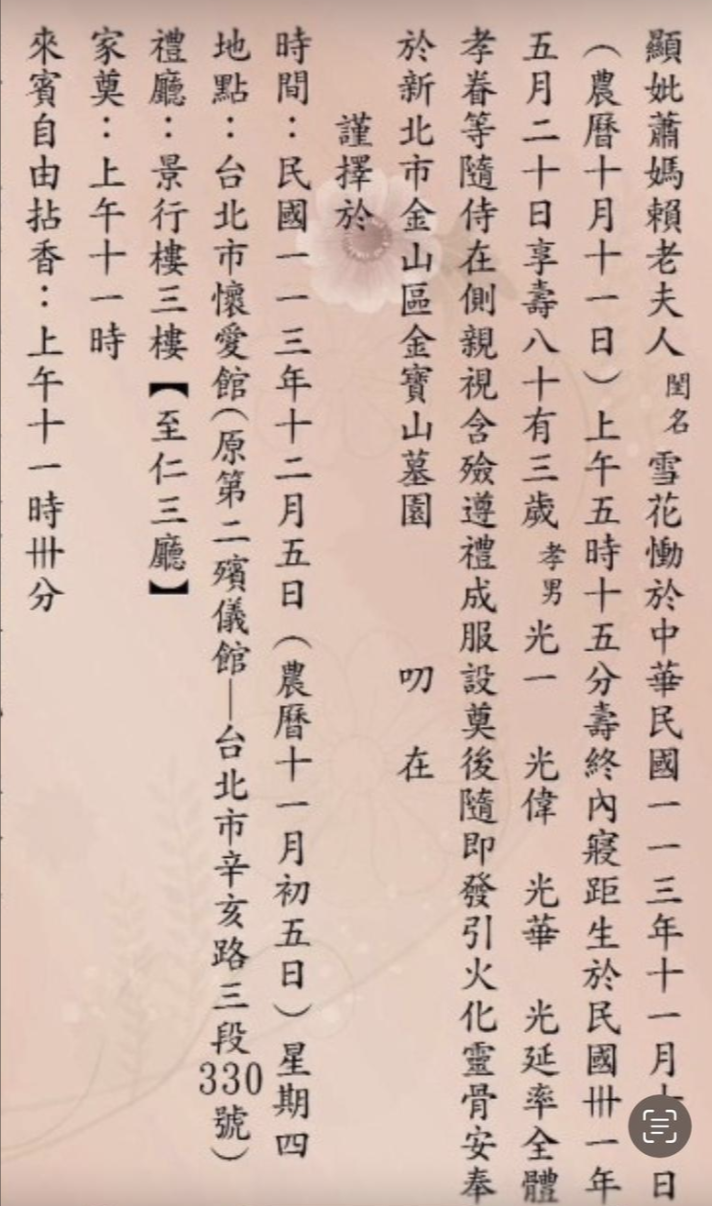 顯妣蕭媽賴老夫人閨名雪花慟於中華民國一一三年十一月十 日
（農曆十月十一日）上午五時十五分壽終內寢距生於民國卅一年
五月二十日享壽八十有三歲孝男光一 光偉 光華 光延率全體
孝眷等隨侍在側親視含殮遵禮成服設奠後隨即發引火化靈骨安奉
於新北市金山區金寶山墓園 叨 在
謹擇於
時間：民國一一三年十二月五日（農曆十一月初五日）星期四
地點：台北市懷愛館（原第二殯儀館—台北市辛亥路三段330號）
禮廳：景行樓三樓【至仁三廳】
家奠：上午十一時
來賓自由拈香：上午十一時卅分